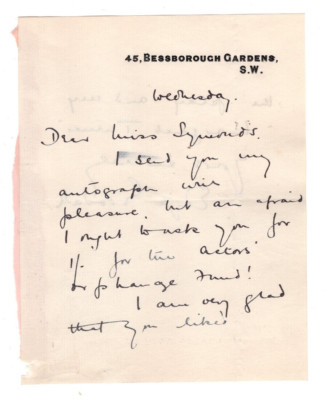 45, BESSBOROUGH GARDENS,
S.W.
Wednesday.
Dear Miss Symonds.
I send you my
autograph with
pleasure. but am afraid
I ought to ask you for
1/- for the actors'
orphanage Fund!
I am very glad
that you liked